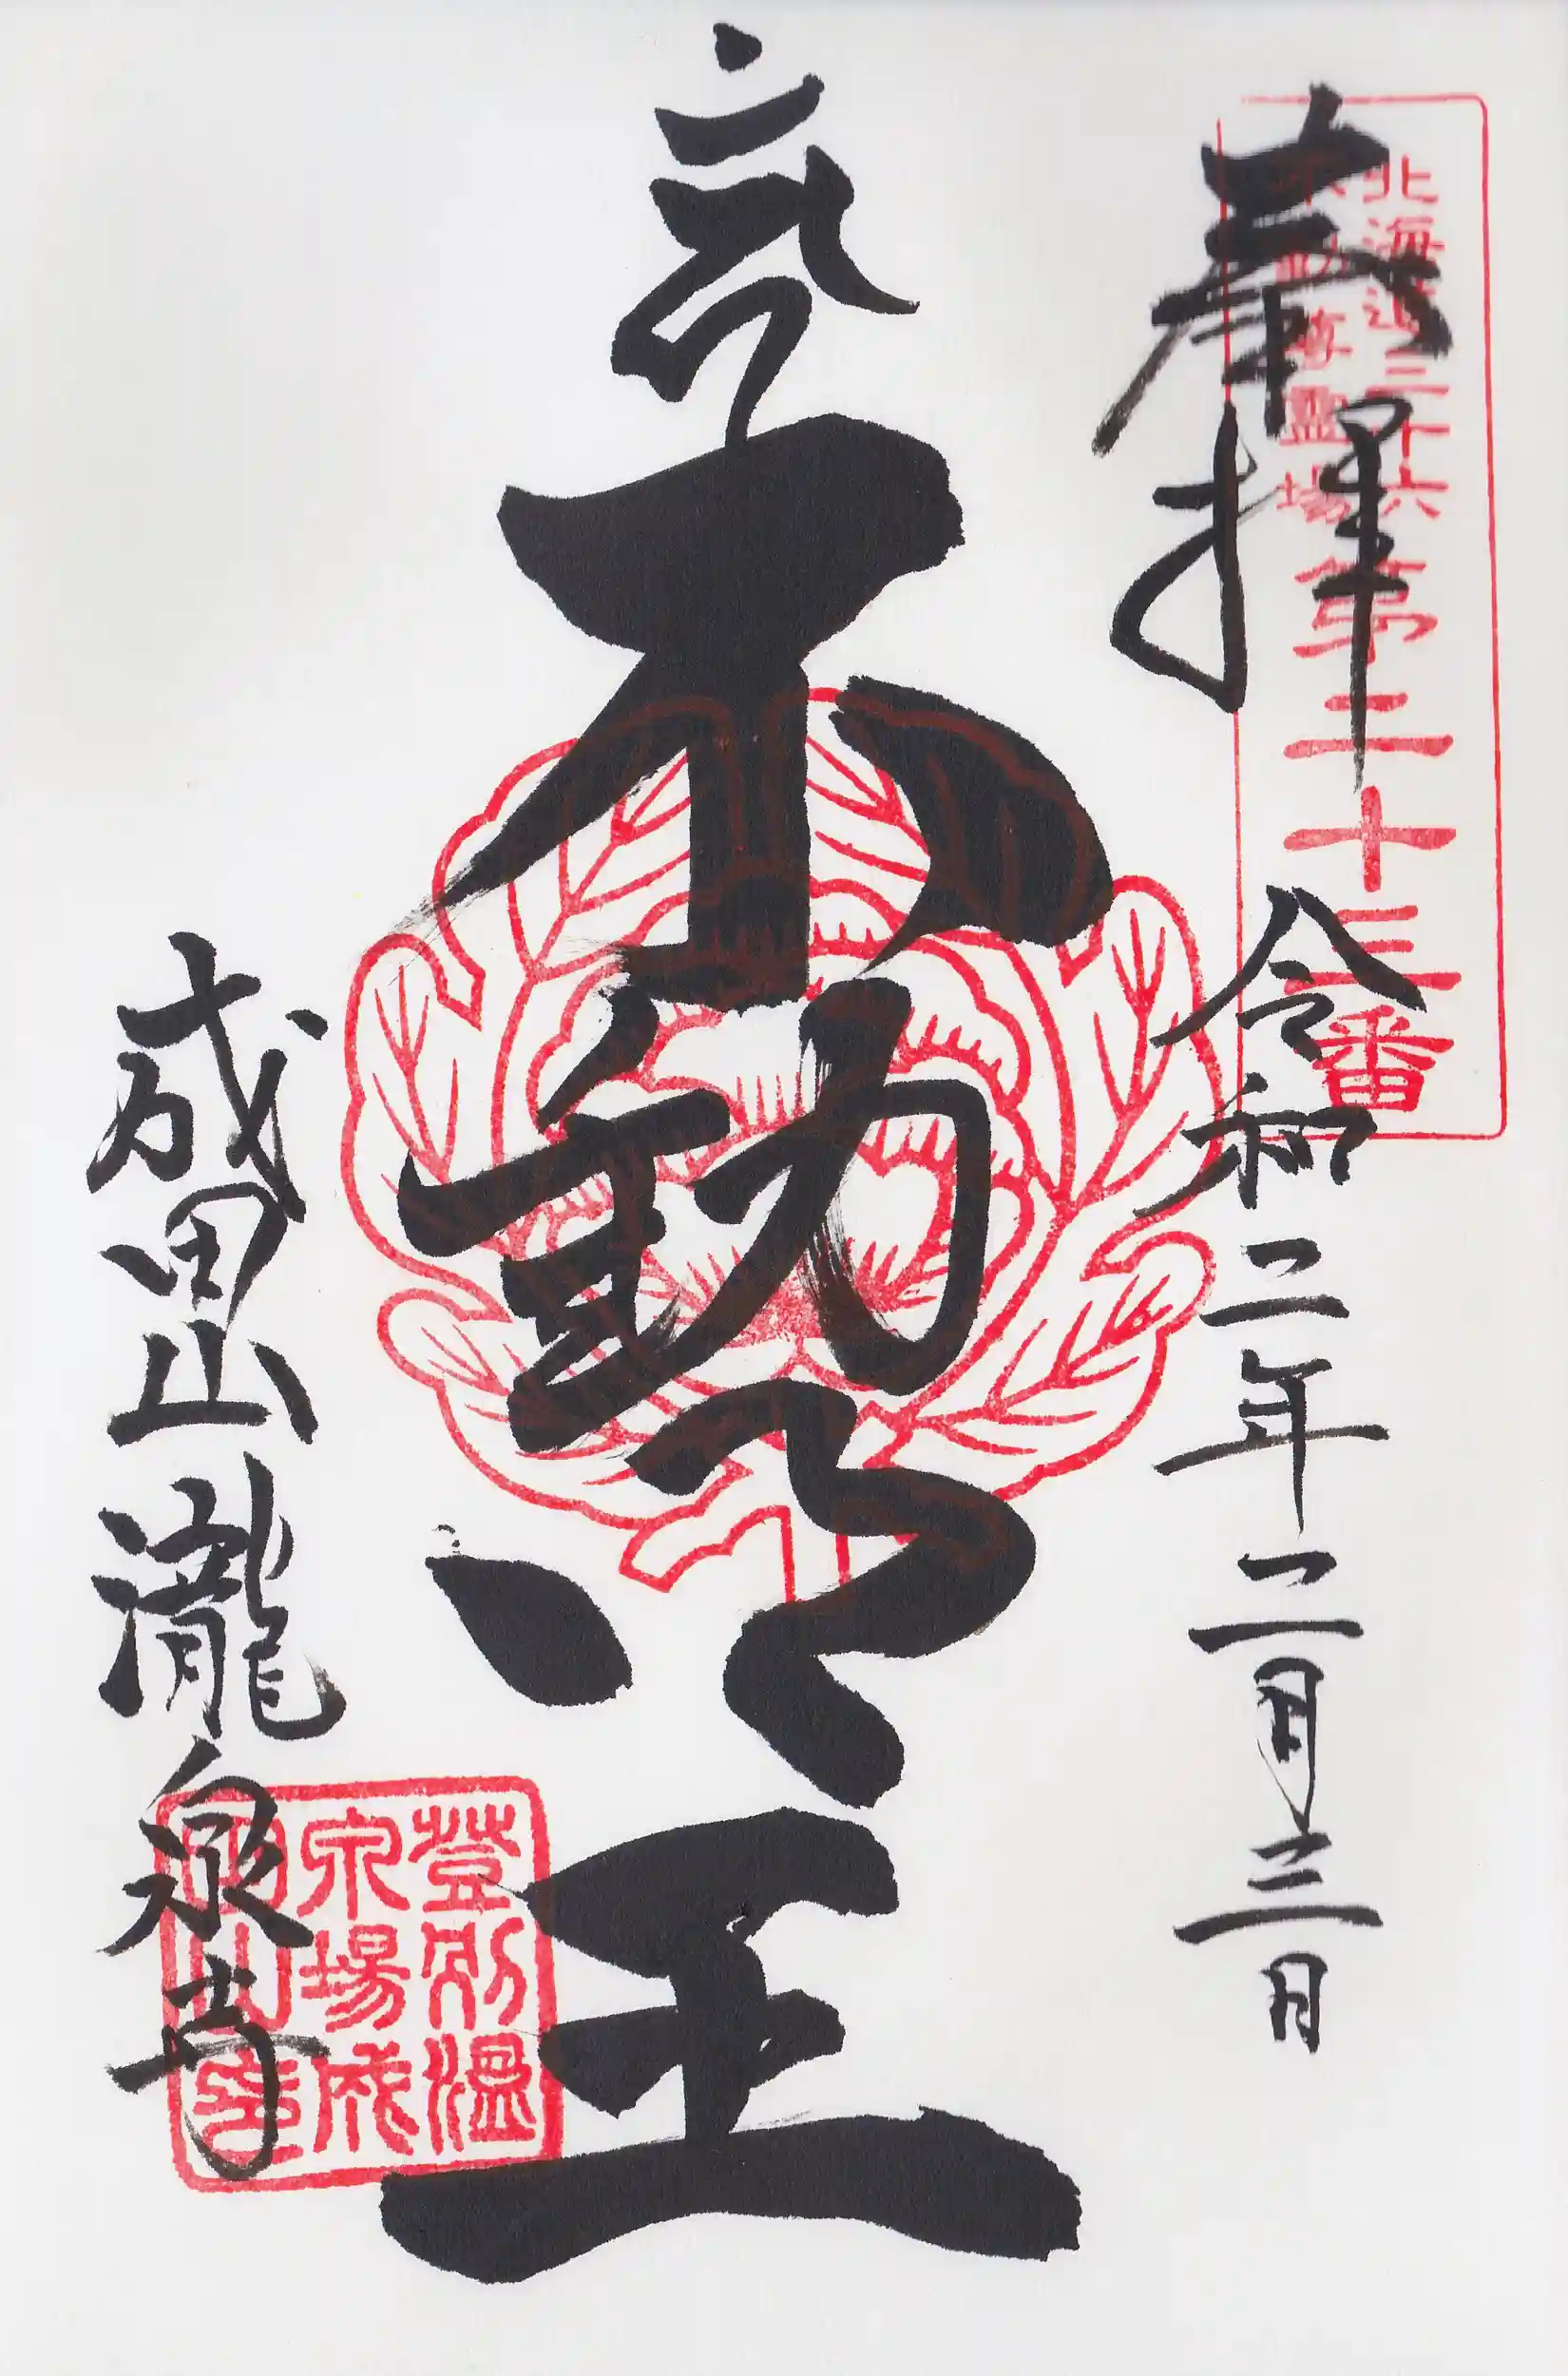 北海道三十六
不動尊霊場
第二十三番
奉拝
令和二年二月三日
不動明王
成田山瀧泉寺
登別温
泉場成
田山